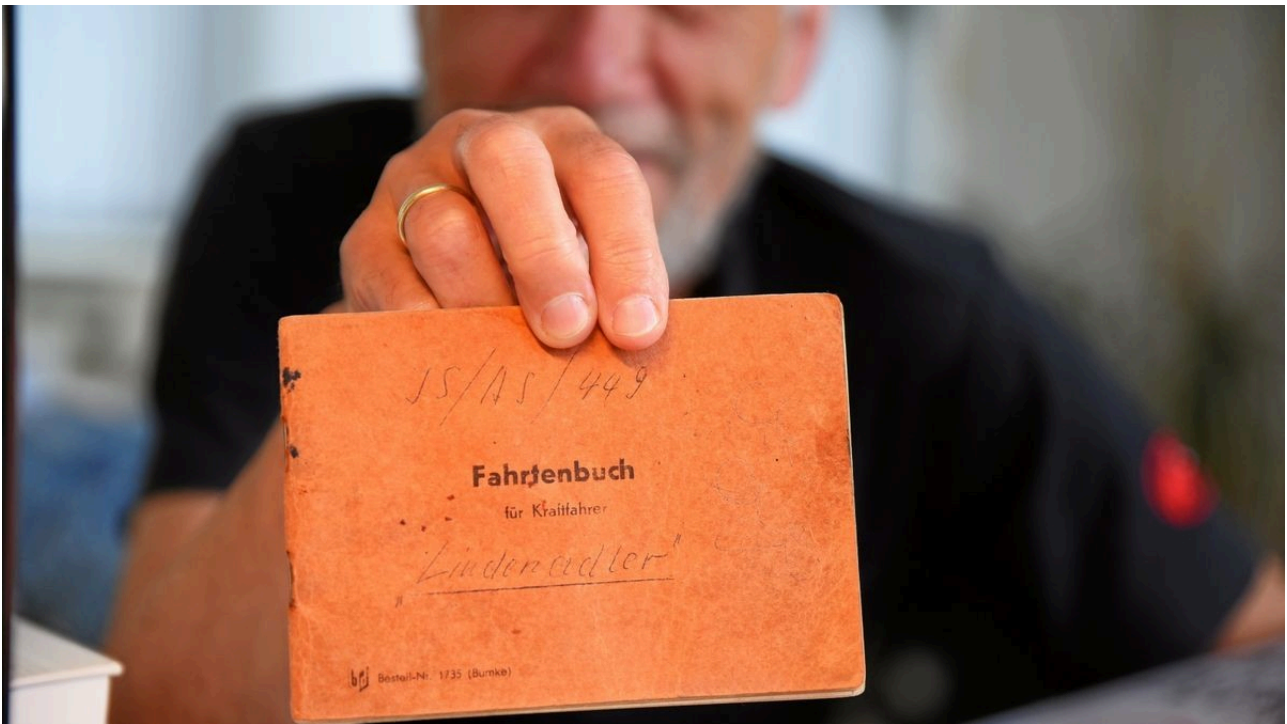 JS/AS/449
Fahrtenbuch
für Kraftfahrer
"Lindenadler"
Bestell-Nr. 1735 (Burnke)